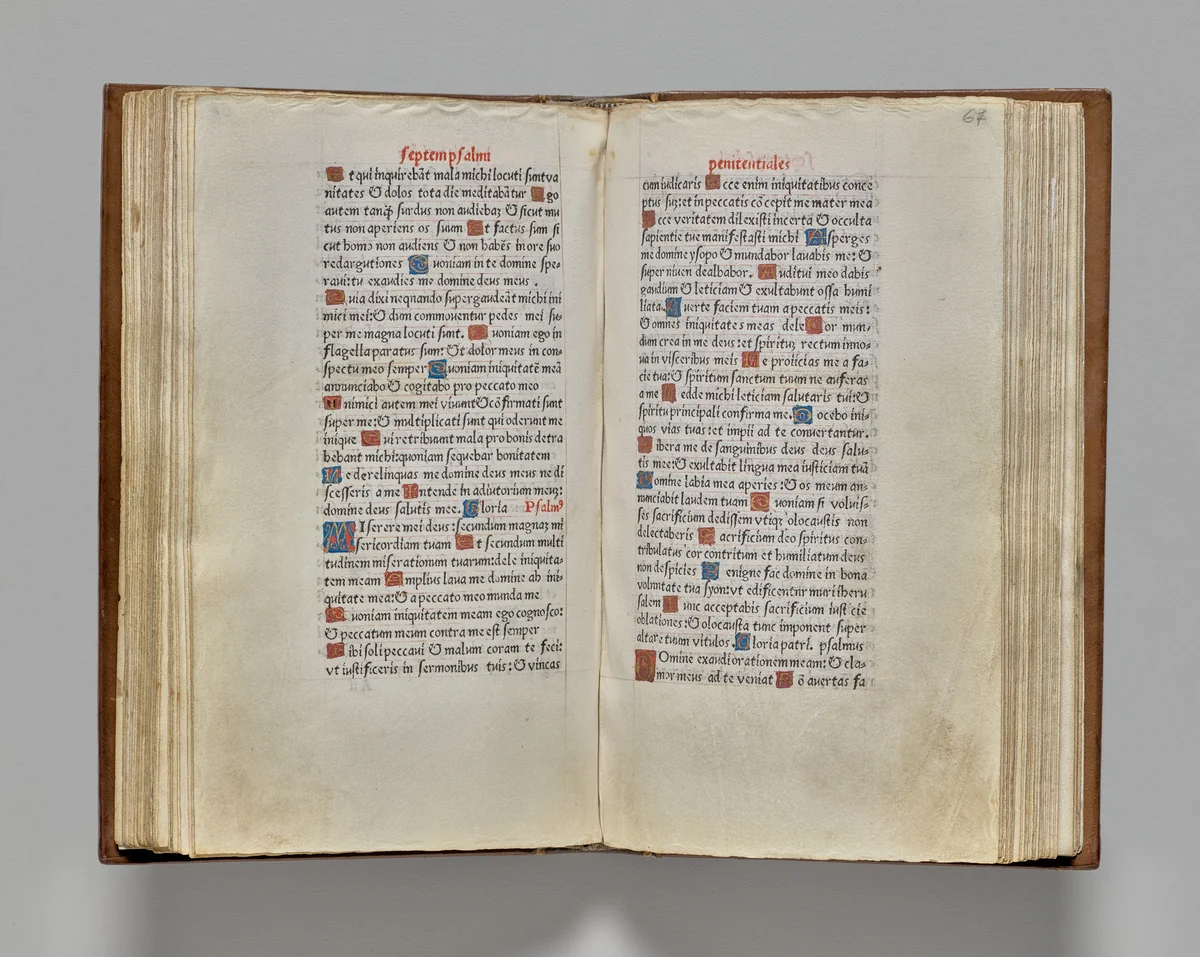 septem psalmi
Et qui inquirebāt mala michi locuti sunt va
nitates & dolos tota die meditabātur Ego
autem tanq̄ surdus non audiebaʒ & sicut mu
tus non aperiens os suum Et factus sum si
cut homo non audiens & non habēs in ore suo
redargutiones Quoniam in te domine spe-
raui:tu exaudies me domine deus meus .
Quia dixi nequando supergaudeāt michi ini
mici mei:& dum commouentur pedes mei su-
per me magna locuti sunt. Quoniam ego in
flagella paratus sum:& dolor meus in con-
spectu meo semper Quoniam iniquitatē meā
annunciabo & cogitabo pro peccato meo
Inimici autem mei viuunt & cōfirmati sunt
super me:& multiplicati sunt qui oderunt me
inique Qui retribuunt mala pro bonis detra
hebant michi:quoniam sequebar bonitatem
Ne derelinquas me domine deus meus ne di
scesseris a me Intende in adiutorium meuʒ:
domine deus salutis mee. Gloria Psalmꝰ
MIserere mei deus:secundum magnaʒ mi
sericordiam tuam Et secundum multi
tudinem miserationum tuarum:dele iniquita-
tem meam Amplius laua me domine ab ini-
quitate mea:& a peccato meo munda me
Quoniam iniquitatem meam ego cognosco:
& peccatum meum contra me est semper
Tibi soli peccaui & malum coram te feci:
vt iustificeris in sermonibus tuis:& vincas
67
penitentiales
cum iudicaris Ecce enim iniquitatibus conce
ptus suʒ:et in peccatis cōcepit me mater mea
Ecce veritatem dilexisti incerta & occulta
sapientie tue manifestasti michi Asperges
me domine ysopo & mundabor lauabis me:&
super niuen dealbabor. Auditui meo dabis
gaudium & leticiam & exultabunt ossa humi
liata Auerte faciem tuam a peccatis meis:
& omnes iniquitates meas dele Cor mun-
dum crea in me deus:et spirituʒ rectum inno-
ua in visceribus meis Ne proiicias me a fa-
cie tua:& spiritum sanctum tuum ne auferas
a me Redde michi leticiam salutaris tui:&
spiritu principali confirma me. Docebo ini-
quos vias tuas:et impii ad te conuertantur.
Libera me de sanguinibus deus deus salu-
tis mee:& exultabit lingua mea iusticiam tuā
Domine labia mea aperies:& os meum an-
nunciabit laudem tuam Quoniam si voluis-
ses sacrificium dedissem vtiqʒ olocaustis non
delectaberis Sacrificium deo spiritus con-
tribulatus cor contritum et humiliatum deus
non despicies Benigne fac domine in bona
voluntate tua syon:vt edificentur muri iheru
salem Tunc acceptabis sacrificium iusticie
oblationes:& olocausta tunc imponent super
altare tuum vitulos. Gloria patri. psalmus
DOmine exaudi orationem meam:& cla-
mor meus ad te veniat Nō auertas fa